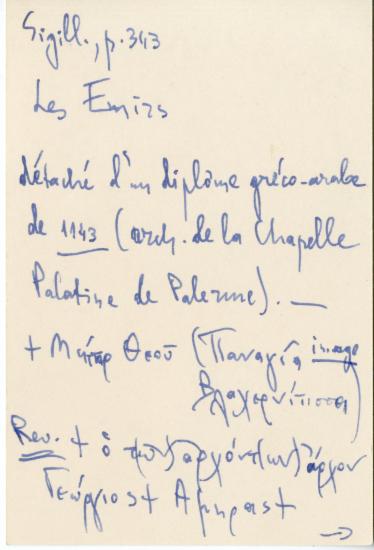 Sigill., p. 343
Les Emirs
détaché d'un diplôme gréco-arabe
de 1143 (arch. de la Chapelle
Palatine de Palerme). —
+ Μήτηρ Θεοῦ (Παναγία image
Βλαχερνίτισσα)
Rev. + ὁ τῶν ἀρχόντ(ων) ἄρχον
Γεώργιος + Αμηρας +
→